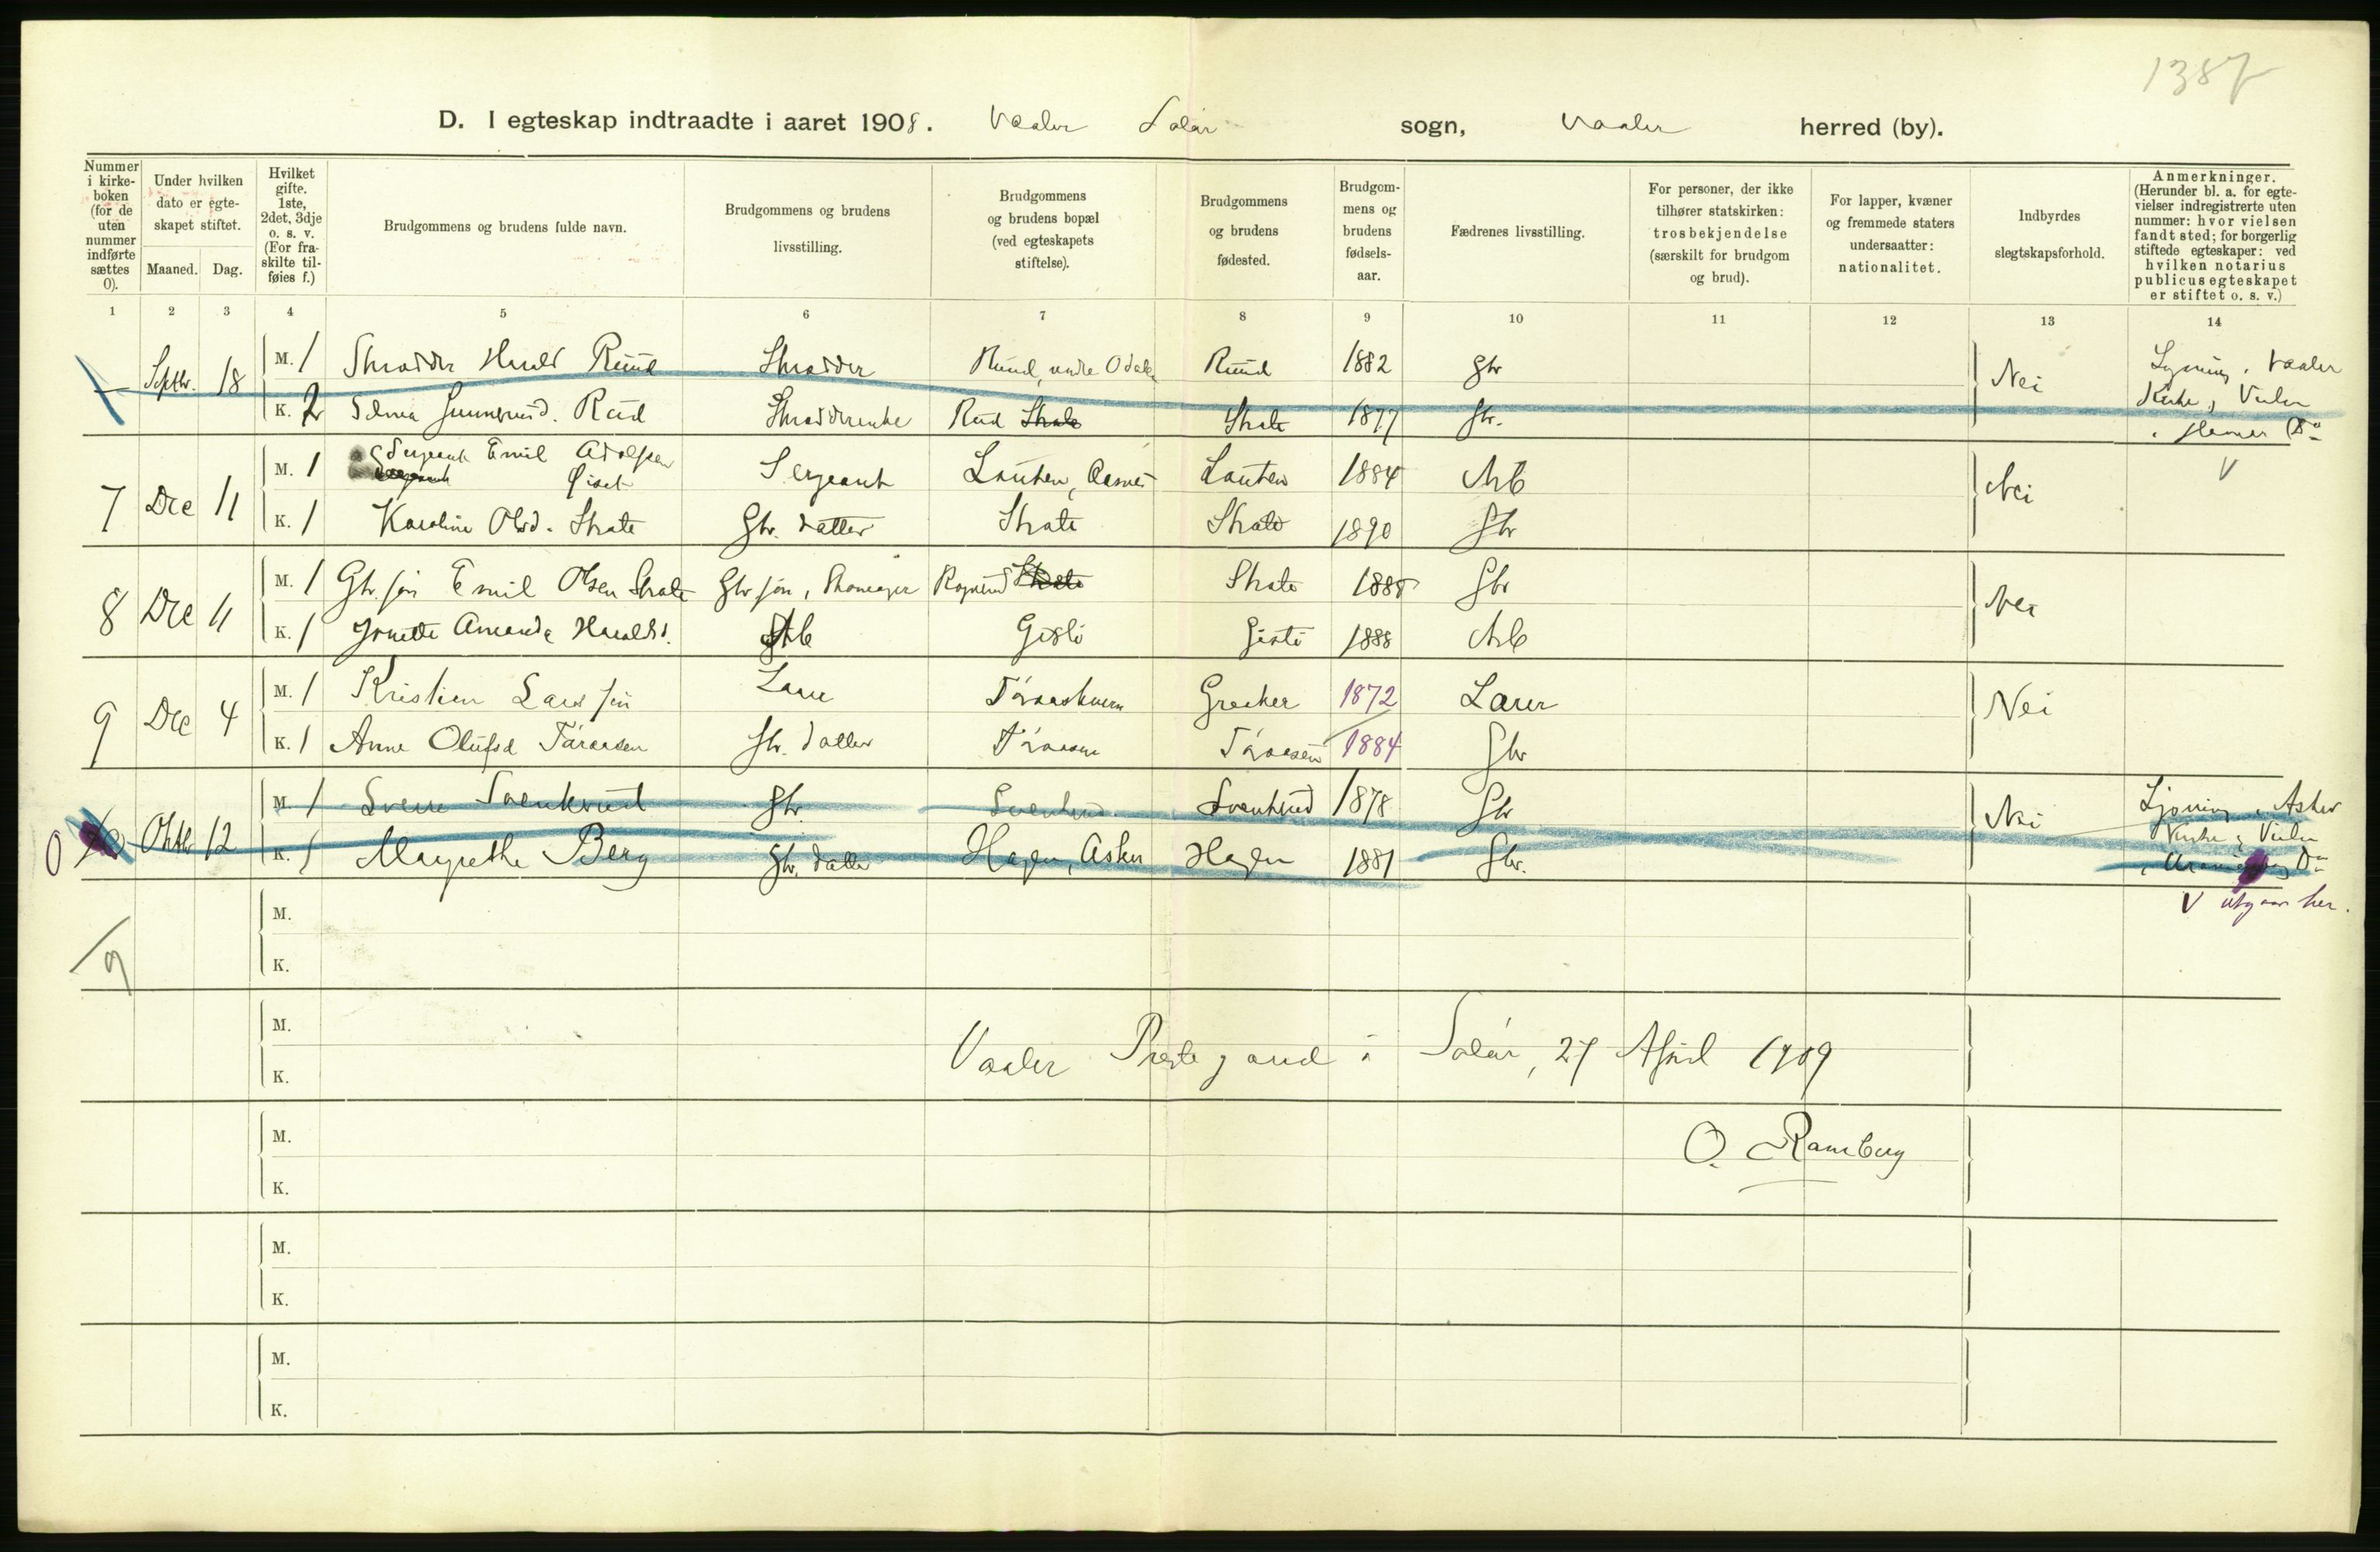 1387
D. I egteskap indtraadte i aaret 1908. Vaaler Solør sogn, Vaaler herred (by).
Nummer i kirke-boken (for de uten nummer indførte sættes 0).
Under hvilken dato er egte-skapet stiftet.
Maaned. Dag.
Hvilket gifte. 1ste, 2det, 3dje o. s. v. (For fra-skilte til-føies f.)
Brudgommens og brudens fulde navn.
Brudgommens og brudens livsstilling.
Brudgommens og brudens bopæl (ved egteskapets stiftelse).
Brudgommens og brudens fødested.
Brudgom-mens og brudens fødsels-aar.
Fædrenes livsstilling.
For personer, der ikke tilhører statskirken: trosbekjendelse (særskilt for brudgom og brud).
For lapper, kvæner og fremmede staters undersaatter: nationalitet.
Indbyrdes slegtskapsforhold.
Anmerkninger. (Herunder bl. a. for egte-vielser indregistrerte uten nummer: hvor vielsen fandt sted; for borgerlig stiftede egteskaper: ved hvilken notarius publicus egteskapet er stiftet o. s. v.)
1 2 3 4 5 6 7 8 9 10 11 12 13 14
Septbr. 18 M. 1 Skrædder Harald Ruud Skrædder Ruud, Ruud 1882 Gbr Nei Lysning i Vaaler
K. 2 Gunnerud. Rud Rud Skate Skate 1877 Gbr. Kirke, Vielse
i Hamar Do
7 Dec 11 M. 1 Sergeant Emil Adolfsen Øiset Sergeant Løuten, Løuten 1884 Arb Nei V
K. 1 Karoline Olsd. Skate Gbr. datter Skate Skate 1890 Gbr
8 Dec 11 M. 1 Gbr. søn Emil Olsen Skate Gbr søn, Skomager Skate Skate 1885 Gbr Nei
K. 1 Amanda Haralds. Arb Gisti Gisti 1888 Arb
9 Dec 4 M. 1 Kristian Lars søn Græsker 1872 Nei
K. 1 Anne Olufsd Gbr. datter 1884 Gbr
0 10 Oktbr 12 M. 1 Sverre Svenkerud Gbr. Svenkerud Svenkerud 1878 Gbr Nei Lysning i Asker
K. 1 Magrethe Berg Gbr. datter Hagen, Asker Hagen 1881 Gbr. Kirke, Vielse
V utgaar her.
9
M.
K.
M.
K.
Vaaler Prestegaard i Solør, 27 April 1909
M.
K.
O. Ramberg
M.
K.
M.
K.